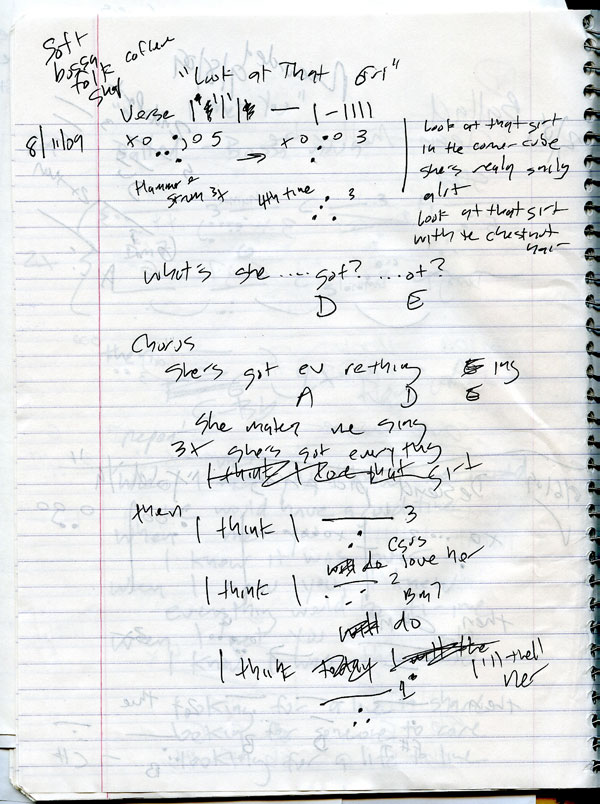 Soft
bossa
folk coffee
shop
"Look at That Girl"
Verse
8/11/09
x0 05 → x0 0 3
Hammer
strum 3x 4th time 3
Look at that girl
in the corner cube
she's really
Look at that girl
with the chestnut
hair
What's she .... got? ... ot?
D E
Chorus
She's got ev rething ing
A D E
She makes me sing
3x she's got everything
I think I love that girl
then
I think I 3
do love her
I think I 2
Bm7
do
I think I'll tell
her
1